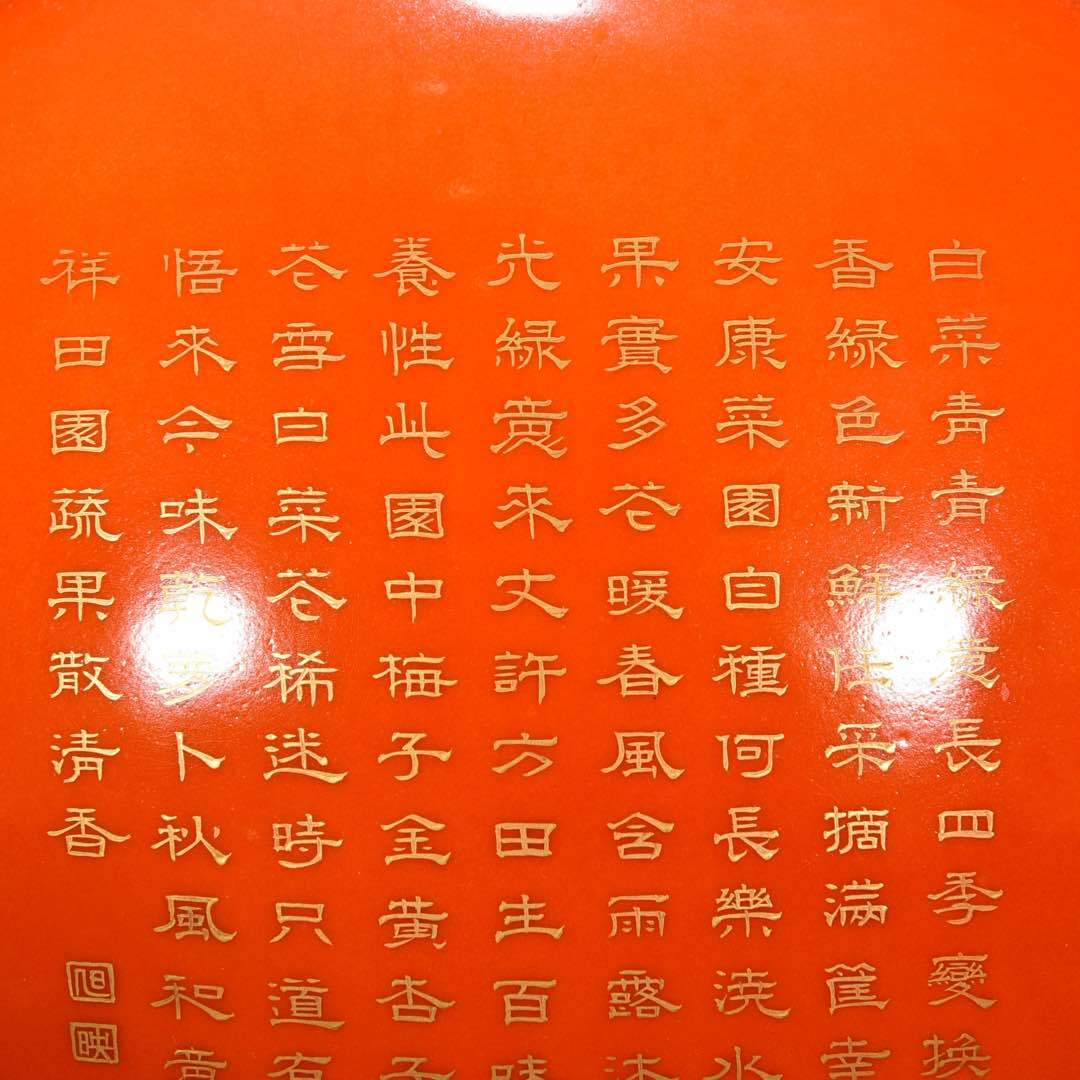 白菜青青綠意長四季變換
香綠色新鮮任采摘滿筐幸
安康菜園自種何長樂澆水
果實多花暖春風含雨露沐
光綠意來丈許方田生百味
養性此園中梅子金黃杏子
花雪白菜花稀迷時只道
悟來今味乾卜秋風和
祥田園蔬果散清香
映